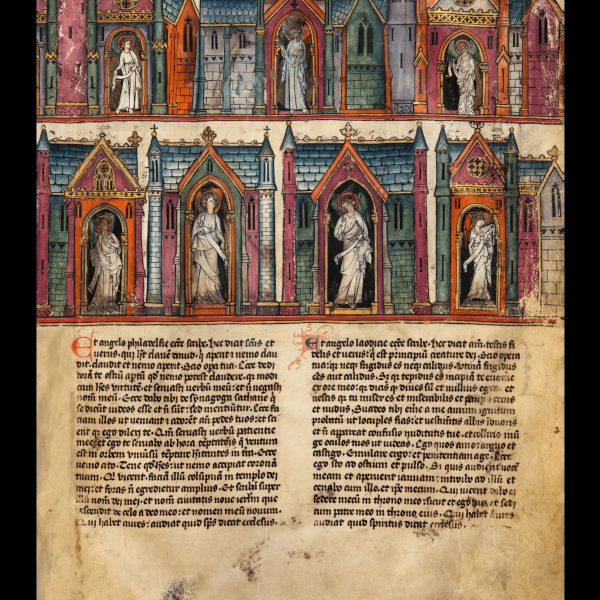 Et angelo philadelfie eccͤ scribe. hec dicit scͥus et
verus. qui hͭt clavē david. q̇ aperit ⁊ nemo clau
dit. claudit et nemo aperit. Scio opa tua. Ecce ded
corā te ostiū aptū qd̓ nemo potest claudere. qꝛ modi
cam hēs virtutē et servasti verbū meū: et ñ negasti
nom̄ meū. Ecce dabo tibi de synagoga sathane q̇
se dicūt iudeos esse et ñ sūt sed mentiūtur. Ecce faci
ciam illos ut veniant ⁊ adorēt an̄ pedes tuos: et sci
ent qꝛ ego dilexi te. Qm̄ servasti verbū patientie
mee: et ego te servabo ab hora tēptatōnis q̇ ventura
est in orbem
venio cito. Tene qd̓ hēs: ut nemo accipiat coronā
tuam. Qͥ vicerit. faciā illū colūpnā in templo dei
mei: et foras ñ egredietur amplius. Et scribā super
illū nom̄ dei mei. et nom̄ civitatis nove ierlm̄ que
descendit de celo a deo meo: et nomen meū novum.
Qui habet aures: audiat quid sp̄s dicat ecclesiis.
Et angelo laodicie eccͤ scribe. hec dicit am̄. testis fi
delis et verus: q̇ est principiū creature dei. Scio opera
tua: qꝛ neqꝫ frigidus es neqꝫ calidus. Utinā frigidus
eēs aut calidus. Sꝫ qꝛ tepidus es incipiā te evomē
ex ore meo. qꝛ dicis q̇ dives sū et
nescis qꝛ tu miser es et miserabilis et paup̄ ⁊ cecus
et nudus. Suadeo tibi emē a me aurum ignitum
probatū ut locuples fias: et vestimētis albis īduaris
et ñ apareat confusio nuditatis tue. et collirio inū
ge oculos tuos ut videas. Ego quos amo: arguo et
castigo. Emulare ergo: et penitentiam age. Ecce
ego sto ad ostium et pulso. Si quis audierit vocē
meam et aperuerit ianuam: introibo ad illū et
cenabo cum illo. et ip̄e mecum. Qui vicerit dabo ei
sedere mecū in throno meo: sicut et ego vici et sedi
cum patre meo in throno eius. Qui habet aures
audiat quid spiritus dicat ecclesiis.